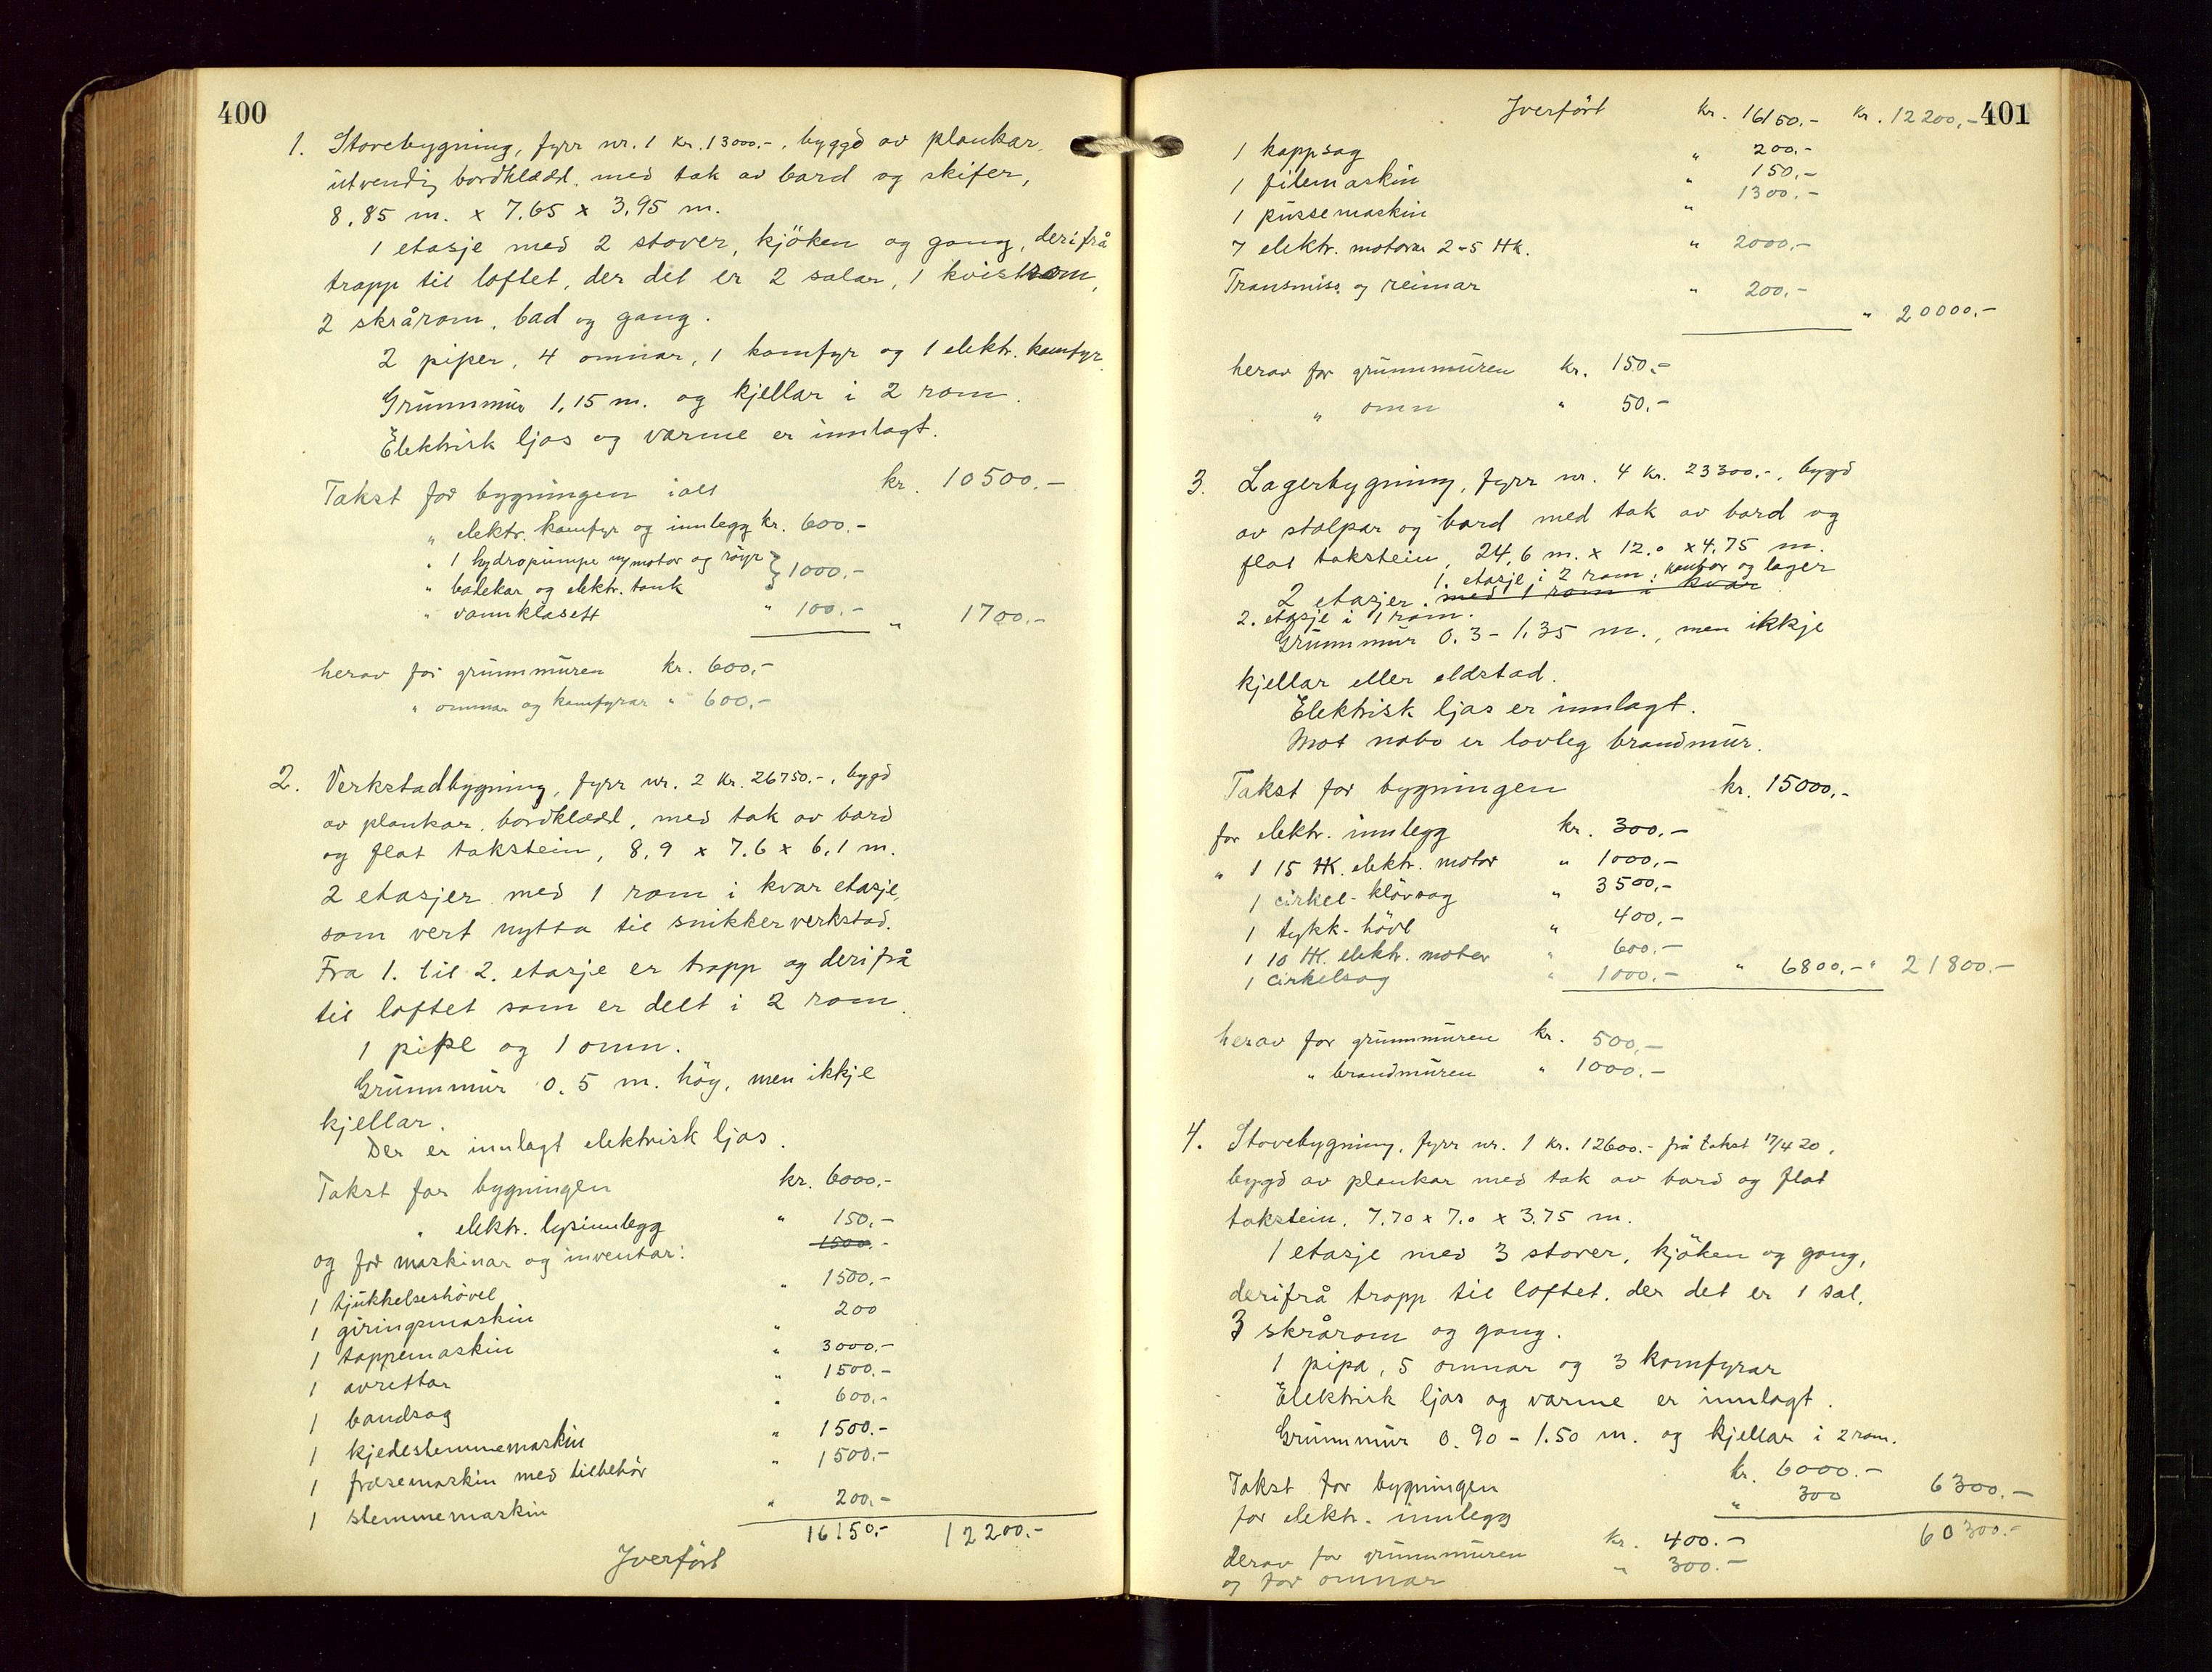 400
1. Stovebygning, fyrr nr. 1 kr. 13000.-, byggd av plankar,
utvendig bordklædd, med tak av bord og skifer,
8,85 m. x 7,65 x 3,95 m.
1 etasje med 2 stover, kjöken og gang, derifrå
trapp til loftet, der det er 2 salar, 1 kvistrom,
2 skrårom, bad og gang.
2 piper, 4 omnar, 1 komfyr og 1 elektr. komfyr.
Grunnmur 1,15 m. og kjellar i 2 rom.
Elektrisk ljos og varme er innlagt.
Takst for bygningen ialt kr. 10500.-
" elektr. komfyr og innlegg kr. 600.-
" 1 hydropumpe m/motor og röyr } 1000.-
" badekar og elektr. tank
" vannklosett " 100.- " 1700.-
herav for grunnmuren kr. 600,-
" omnar og komfyrar " 600,-
2. Verkstadbygning, fyrr nr. 2 kr. 26750.-, bygd
av plankar, bordklædd, med tak av bord
og flat takstein, 8,9 x 7,6 x 6,1 m.
2 etasjer med 1 rom i kvar etasje,
som vert nytta til snikkerverkstad.
Fra 1. til 2. etasje er trapp og derifrå
til loftet som er delt i 2 rom.
1 pipe og 1 omn.
Grunnmur 0,5 m. høg, men ikkje
kjellar.
Der er innlagt elektrisk ljos.
Takst for bygningen kr. 6000,-
" elektr. lysinnlegg " 150,-
1500.-
og for maskinar og inventar:
1 tjukkelseshövel " 1500,-
1 giringsmaskin 200
1 tappemaskin " 3000,-
1 avrettar " 1500,-
1 bandsag " 600,-
1 kjedestemmemaskin " 1500.-
1 fræsemaskin med tilbehör " 1500.-
1 stemmemaskin " 200,-
Yverfört 16150,- 12200.-
401
Yverfört kr. 16150,- kr. 12200,-
1 kappsag " 200,-
1 filemaskin " 150,-
1 pussemaskin " 1300,-
7 elektr. motorar 2-5 HK. " 2000,-
Transmiss. og reimar " 200,-
" 20000,-
herav for grunnmuren kr. 150,-
" omn " 50,-
3. Lagerbygning, fyrr nr. 4 kr. 23300.-, bygd
av stolpar og bord med tak av bord og
flat takstein, 24,6 m. x 12.0 x 4,75 m.
1. etasje i 2 rom: kontor og lager
2 etasjer med 1 rom i kvar
2. etasje i 1 rom.
Grunnmur 0.3 - 1,35 m., men ikkje
kjellar eller eldstad.
Elektrisk ljos er innlagt.
Mot nabo er lovleg brandmur.
Takst for bygningen kr. 15000,-
for elektr. innlegg kr. 300,-
" 1 15 HK. elektr. motor " 1000,-
1 cirkel-klövsag " 3500,-
1 tykk-hövl " 400,-
1 10 HK. elektr. motor " 600,-
1 cirkelsag " 1000,- " 6800,- " 21800,-
herav for grunnmuren kr. 500,-
" brandmuren " 1000.-
4. Stovebygning, fyrr nr. 1 kr. 12600.- frå takst 17/4 20,
bygd av plankar med tak av bord og flat
takstein. 7.70 x 7.0 x 3.75 m.
1 etasje med 3 stover, kjöken og gang,
derifrå trapp til loftet, der det er 1 sal,
3 skrårom og gang.
1 pipa, 5 omnar og 3 komfyrar
Elektrisk ljos og varme er innlagt.
Grunnmur 0.90 - 1.50 m. og kjellar i 2 rom.
Takst for bygningen kr. 6000.-
for elektr. innlegg " 300 6300.-
60300.-
derav for grunnmuren kr. 400.-
og for omnar " 300.-